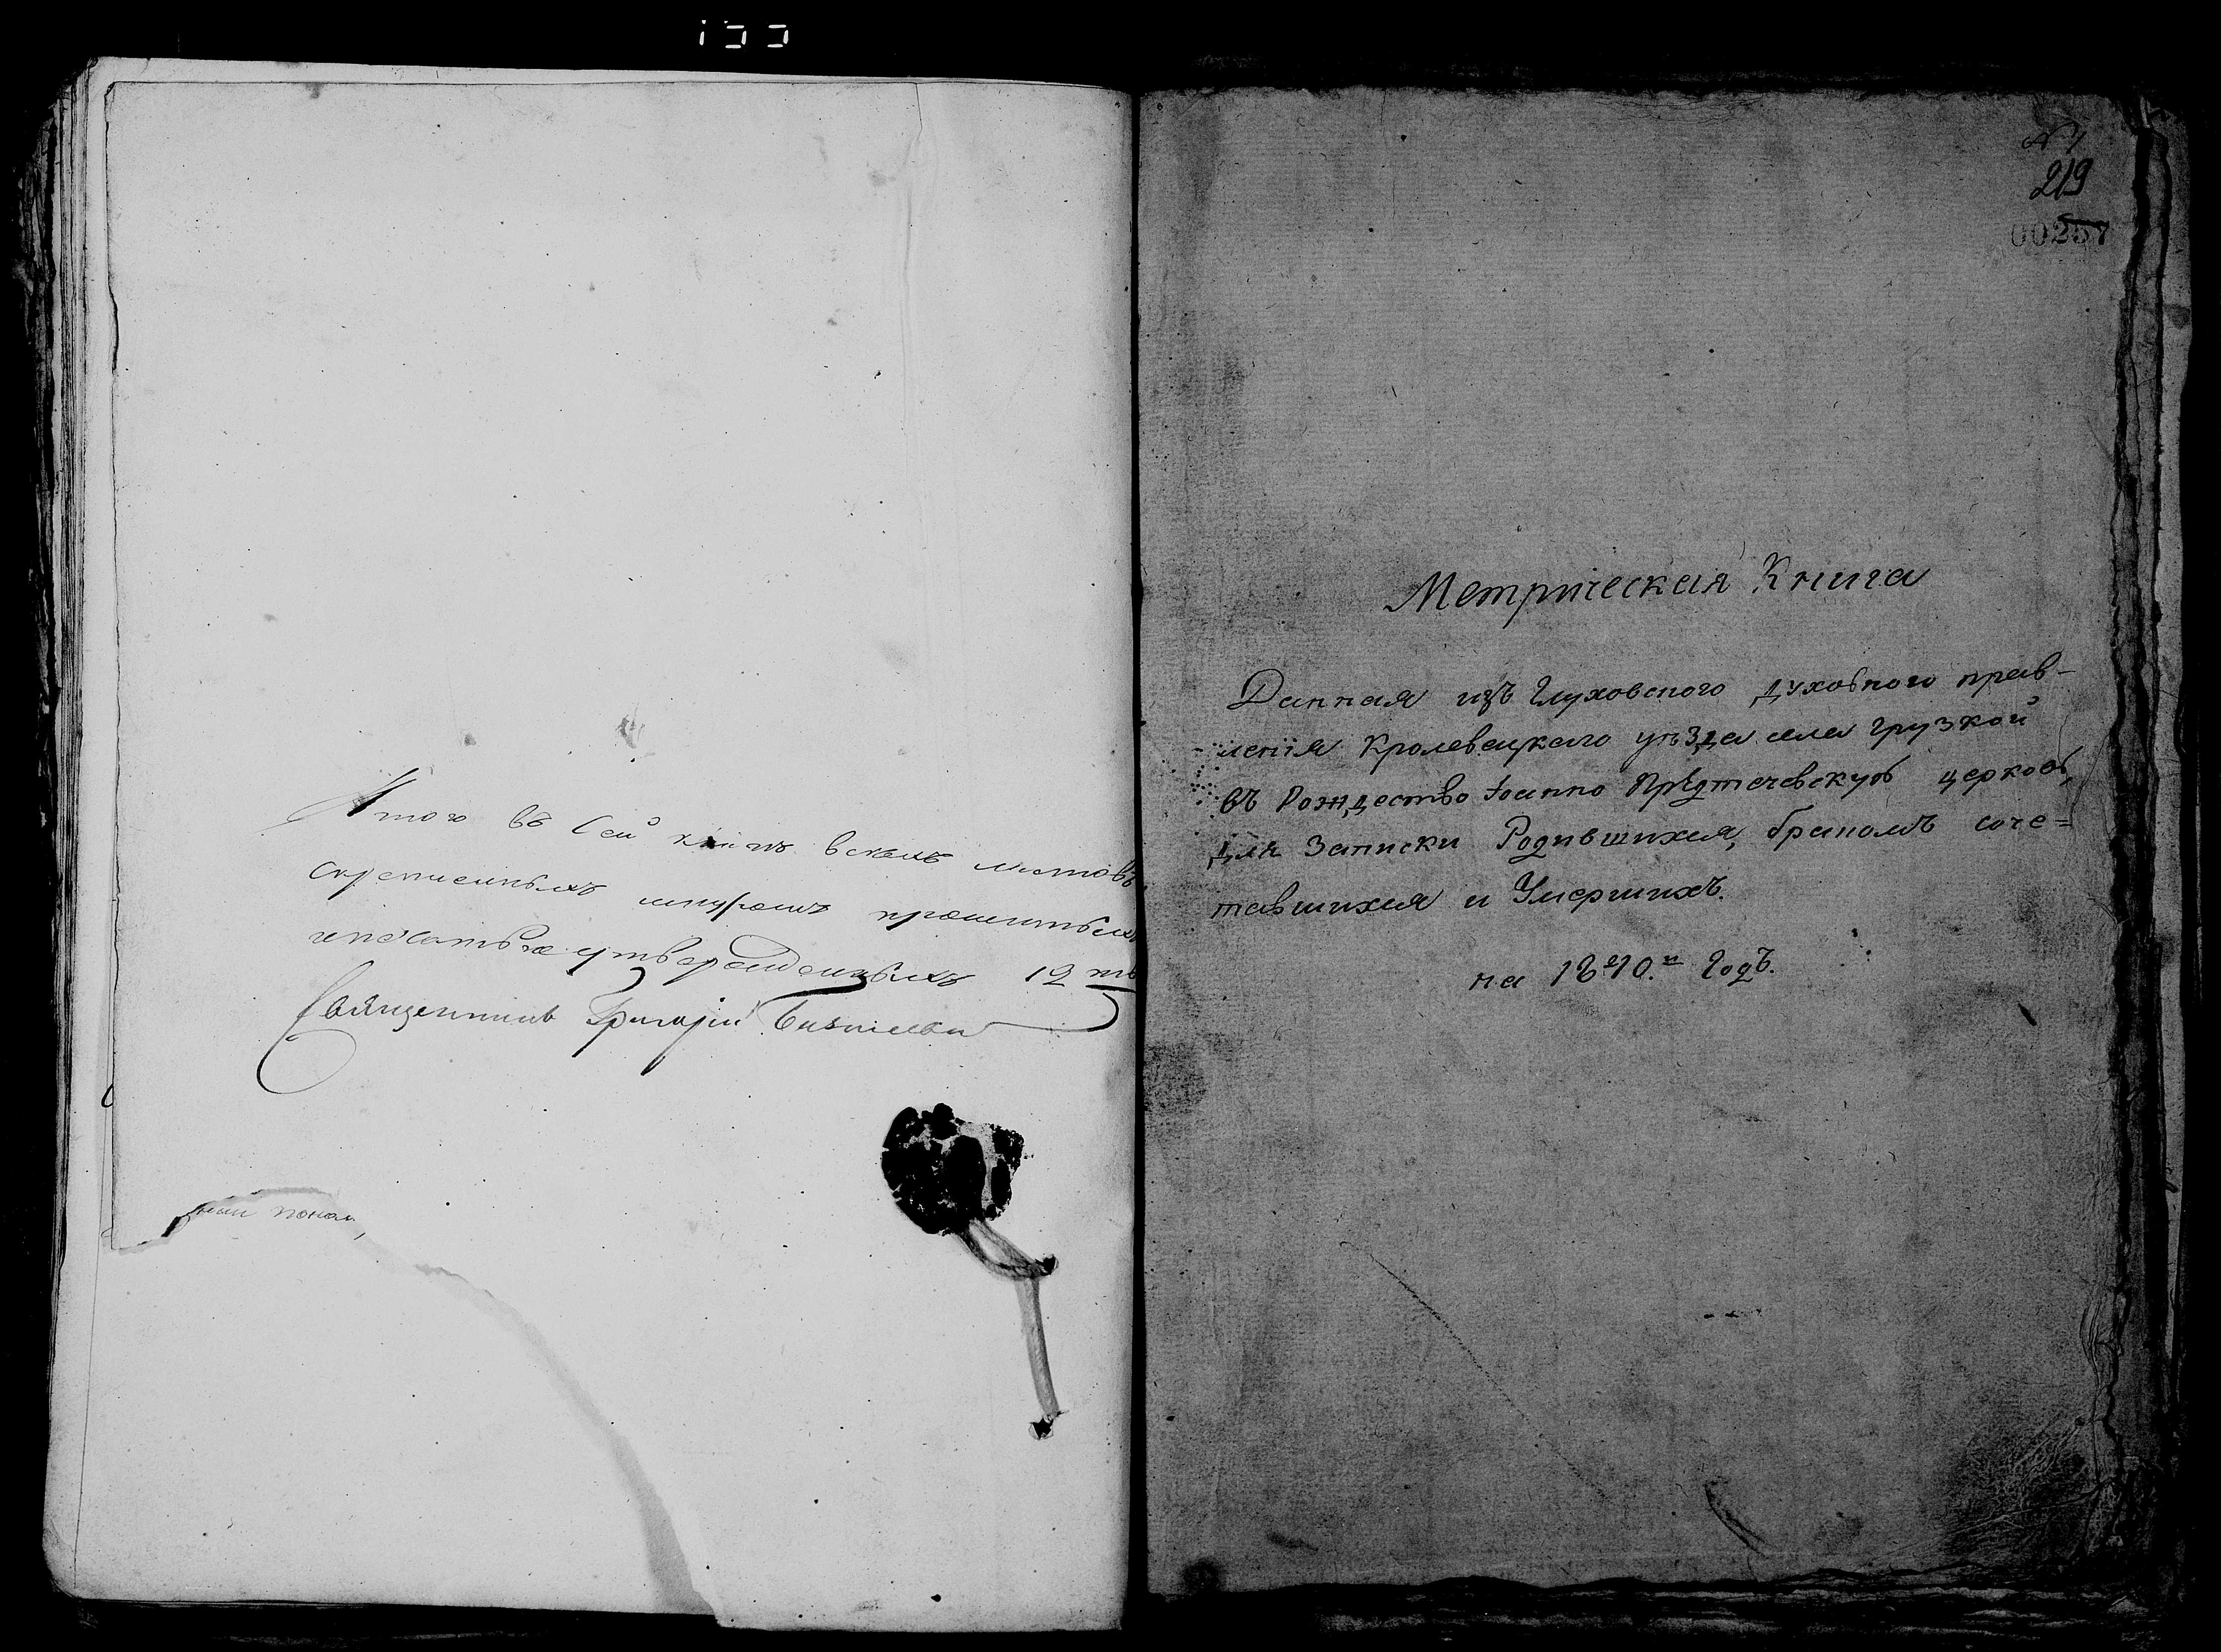 Итого въ Сей книгѣ всехъ листовъ
скрепленныхъ шнуромъ прошитыхъ
и печатью утвержденныхъ 12 ть
Священникъ Григорій
№ 1
219
00257
Метрическая Книга
Данная изъ Глуховского духовного прав-
ленія Кролевецкаго уѣзда села Грузкой
въ Рождество Іоанно Предтечевскую церковь,
для Записки Родившихся, бракомъ соче=
тавшихся и Умершихъ.
на 1810.й Годъ.